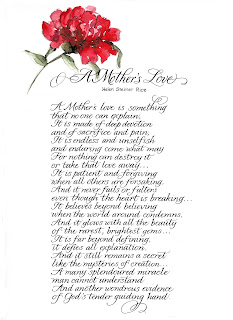 A Mother's Love
Helen Steiner Rice
A Mother's love is something
that no one can explain,
It is made of deep devotion
and of sacrifice and pain,
It is endless and unselfish
and enduring come what may
For nothing can destroy it
or take that love away...
It is patient and forgiving
when all others are forsaking,
And it never fails or falters
even though the heart is breaking...
It believes beyond believing
when the world around condemns,
And it glows with all the beauty
of the rarest, brightest gems...
It is far beyond defining,
it defies all explanation,
And it still remains a secret
like the mysteries of creation...
A many splendoured miracle
man cannot understand
And another wondrous evidence
of God's tender guiding hand